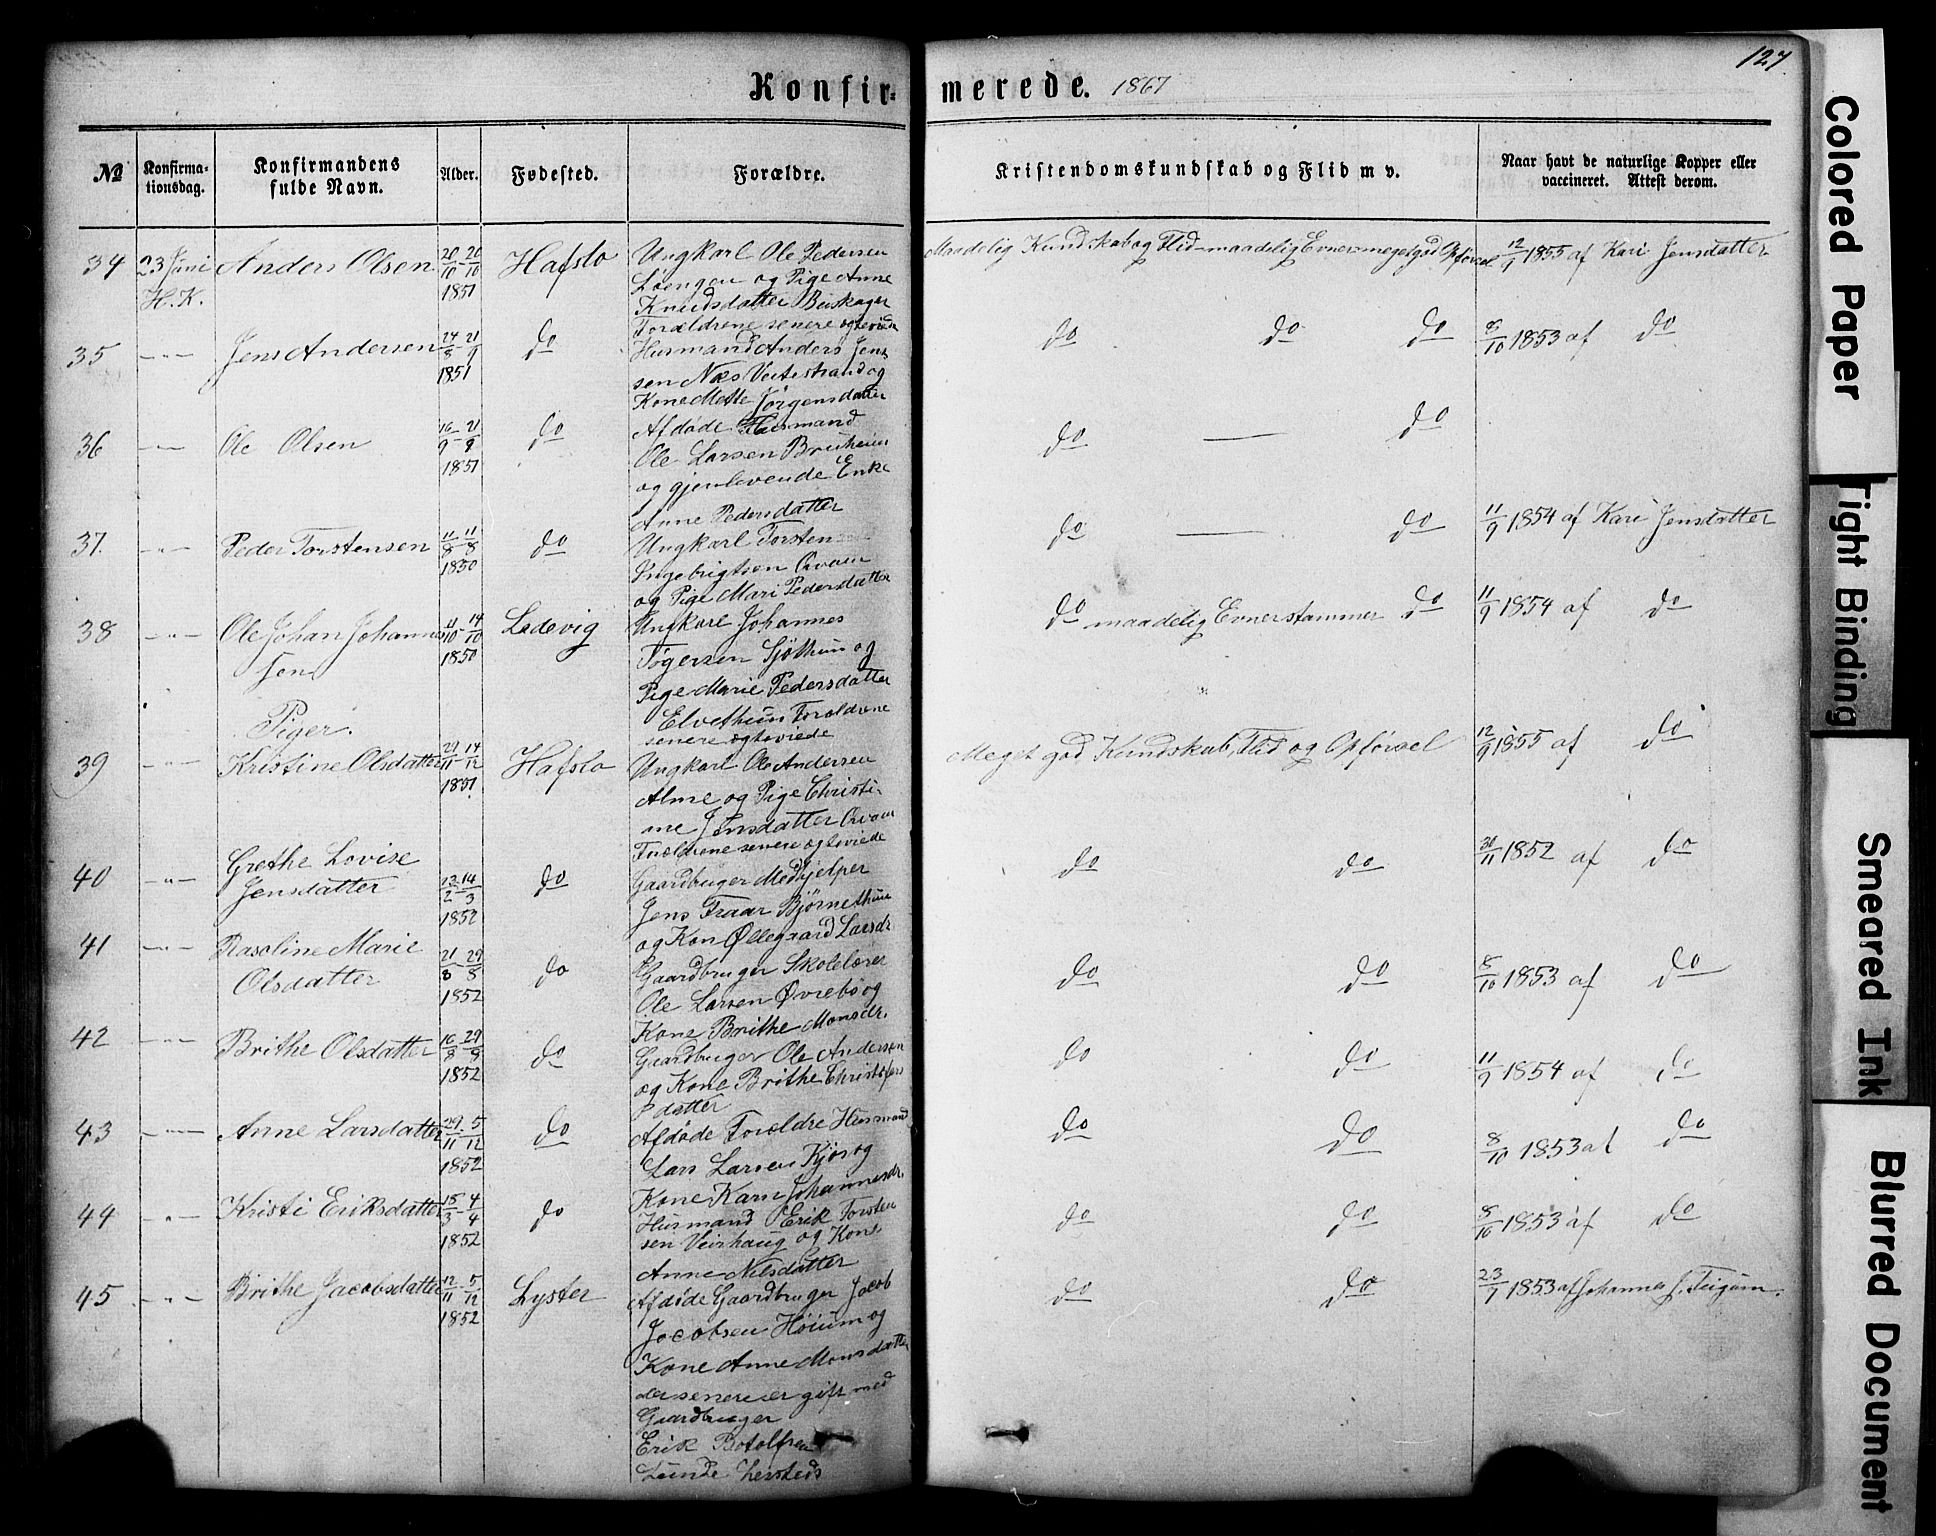 127
Konfirmerede. 1867
№ Konfirmationsdag. Konfirmandens fulde Navn. Alder. Fødested. Forældre. Kristendomskundskab og Flid m v. Naar havt de naturlige Kopper eller vaccineret. Attest derom.
34 23 Juni Anders Olsen 20/10 20/10 Hafslo Ungkarl Ole Pedersen Maadelig Kundskab og Flid - maadelig Evner - meget god Opførsel 12/9 1855 af Kari Jensdatter
H. K. 1851 Löengen og Pige Anne
Knudsdatter Beiskager
Forældrene senere ægteviede
35 -"- Jens Andersen 24/8 21/9 do Husmand Anders Jen- do do do 8/10 1853 af do
1851 sen Næs Veitestrand og
Kone Mette Jörgensdatter
36 -"- Ole Olsen 16/9 21/9 do Afdöde Husmand do — do
1851 Ole Larsen Bruheim
og gjenlevende Enke
Anne Pedersdatter
37. -"- Peder Torstensen 11/8 11/8 do Ungkarl Torsten do — do 11/9 1854 af Kari Jensdatter
1850 Ingebrigtsen
og Pige Mari Pedersdatter
38 -"- Ole Johan Johannes 11/10 14/10 Ladevig Ungkarl Johannes do maadelig Evner stammer do 11/9 1854 af do
sen 1850 Tögersen Sjöthun og
Pige Marie Pedersdatter
Piger. Elvethun Forældrene
senere ægteviede
39 -"- Kristine Olsdatter 21/11 14/12 Hafslo Ungkarl Ole Andersen Meget god Kundskab, Flid og Opførsel 12/9 1855 af do
1851 Alme og Pige Christi-
ne Jensdatter
Forældrene senere ægteviede
40 -"- Grethe Lovise 13/2 14/3 do Gaardbruger Medhjelper do do 30/11 1852 af do
Jensdatter 1852 Jens Traar Bjørnethun
og Kon Øllegaard Larsdr.
41 -"- Rasoline Marie 21/8 29/8 do Gaardbruger Skolelærer do do 8/10 1853 af do
Olsdatter 1852 Ole Larsen Øvrebö og
Kone Brithe Monsdr.
42 -"- Brithe Olsdatter 16/8 29/8 do Gaardbruger Ole Andersen do do 11/9 1854 af do
1852 og Kone Brithe Christofers
datter
43 -"- Anne Larsdatter 29/11 5/12 do Afdöde Forældre Husmand do do 8/10 1853 af do
1852 Lars Larsen Kjös og
Kone Kari Johannesdr.
44 -"- Kristi Eriksdatter 18/3 4/4 do Husmand Erik Torsten do do 8/10 1853 af do
1852 sen Veirhaug og Kone
Anne Nilsdatter
45 -"- Brithe Jacobsdatter 12/11 5/12 Lyster Afdöde Gaardbruger Jacob do do 23/7 1853 af Johannes J. Teigum.
1852 Jacobsen Höium og
Kone Anne Monsdatter
der senere er gift med
Gaardbruger
Erik Botolfsen
Lunde
Colored Paper
Tight Binding
Smeared Ink
Blurred Document